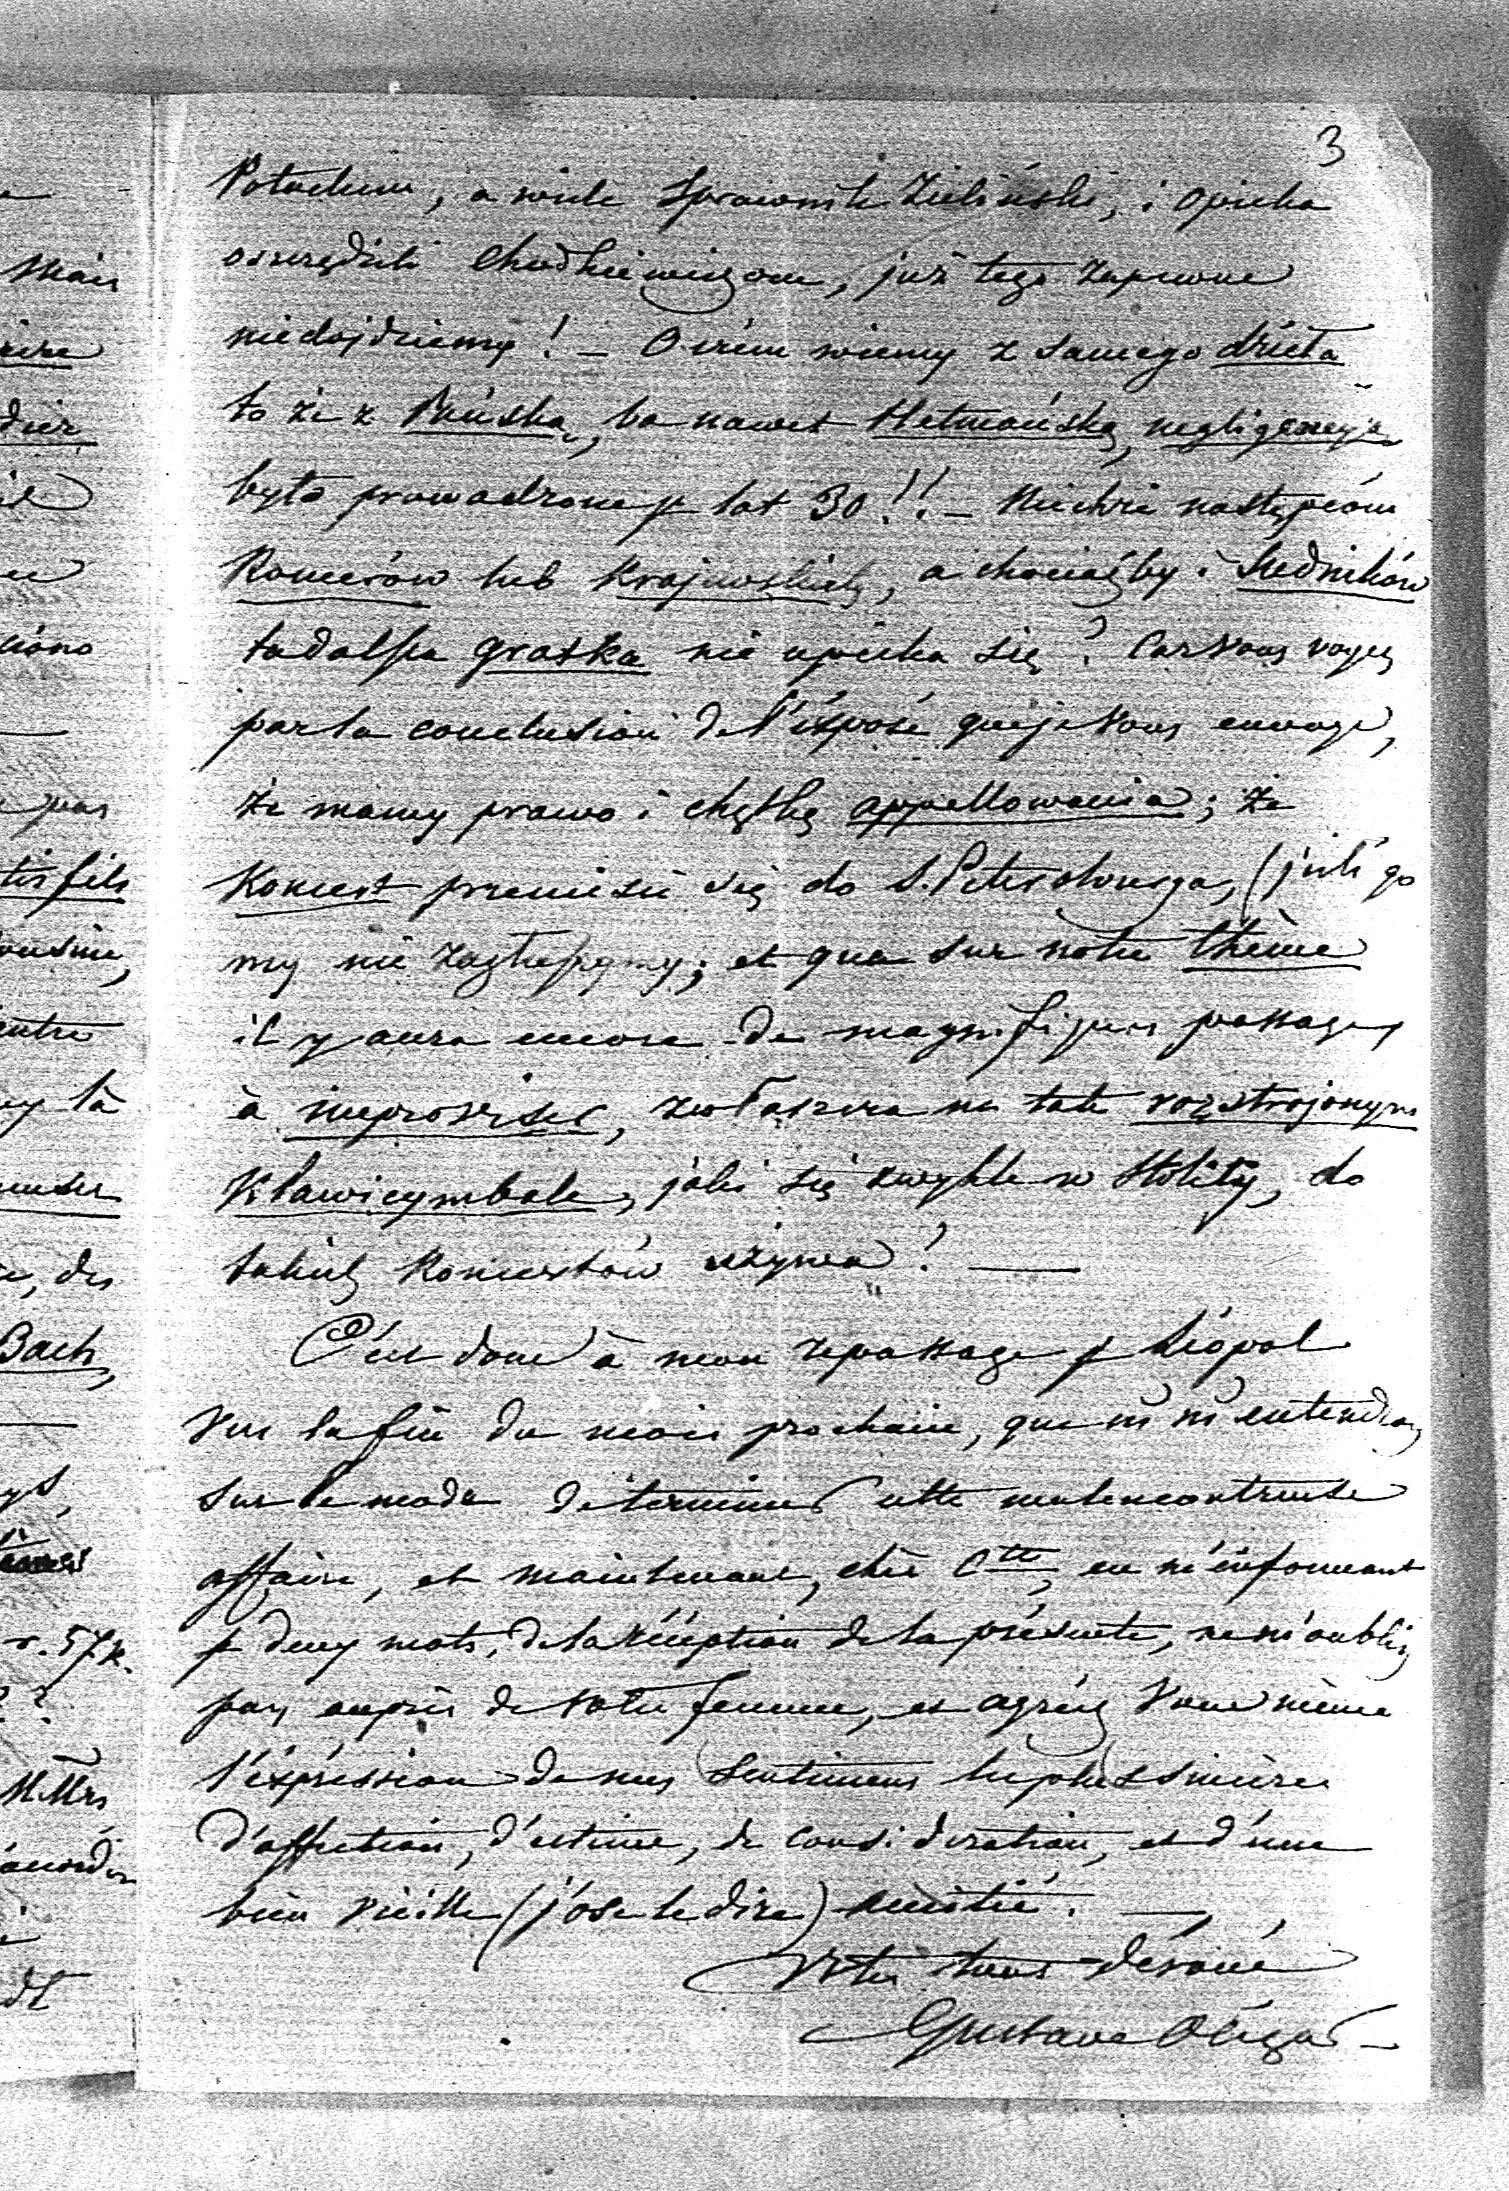 3
Potockim, a wiele Sprawnik Zieliński, i opieka
oszczędzili Chodkiewiczom, już tego zapewne
niedojdziemy! – O czém wiemy z samego dzieła
to że z Pańską, ba nawet Hetmańską negligencyą
było prowadzone p lat 30!!! – Niechże następcóm
Romerów lub Krajewskich, a chociażby i Sledników
ta dalsza gratka nie upieka się! Car vous voyez
par la conclusion de l'éxposé que je vous envoye,
że mamy prawo i chętkę appellowania; że
Koncert przeniesie się do S. Petersbourga, (jeśli go
my nie zastąpiemy; et que sur notre thème
il y aura encore de magnifiques passages
à improviser, zwłaszcza na tak rozstrojonym
Klawicymbale, jaki się zwykle w Stolicy, do
takich Koncertów używa! —
C'est donc à mon repassage p Léopol
vers la fin du mois prochain, que ns ns entendrons
sur le mode de terminer cette malencontreuse
affaire, et maintenant, cher Cte, en m'informant
p deux mots, de la réception de la présente, ne m'oubliez
pas auprès de votre femme, et agréez Vous même
l'éxpréssion de mes sentimens les plus sincères
d'affection, d'estime, de considération, et d'une
bien vieille (j'ose le dire) amitié. —
Votre tout dévoué
Gustave Olizar
Mais
dier
ciono
pas
tis fils
Cousine,
entre
là
, des
Bach,
r. 57 k.
? ?
MMrs